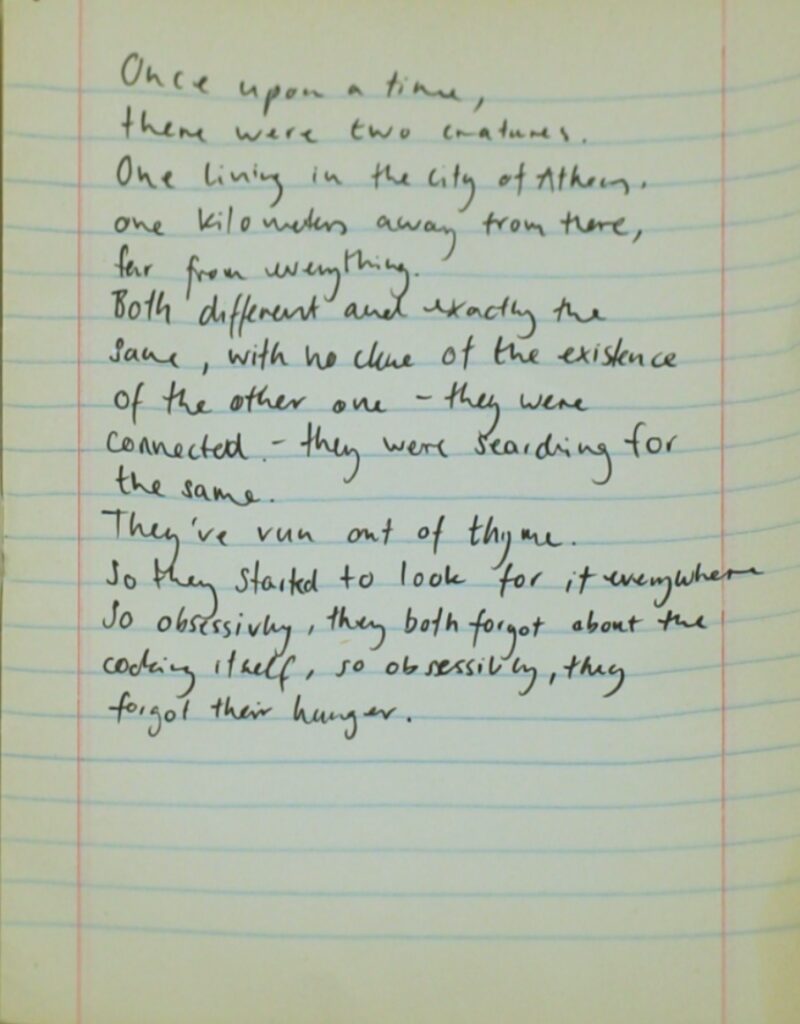 Once upon a time,
there were two creatures.
One living in the city of Athens.
one kilometers away from there,
far from everything.
Both different and exactly the
same, with no clue of the existence
of the other one - they were
connected - they were searching for
the same.
They've run out of thyme.
So they started to look for it everywhere
So obsessivly, they both forgot about the
cooking itself, so obsessivly, they
forgot their hunger.